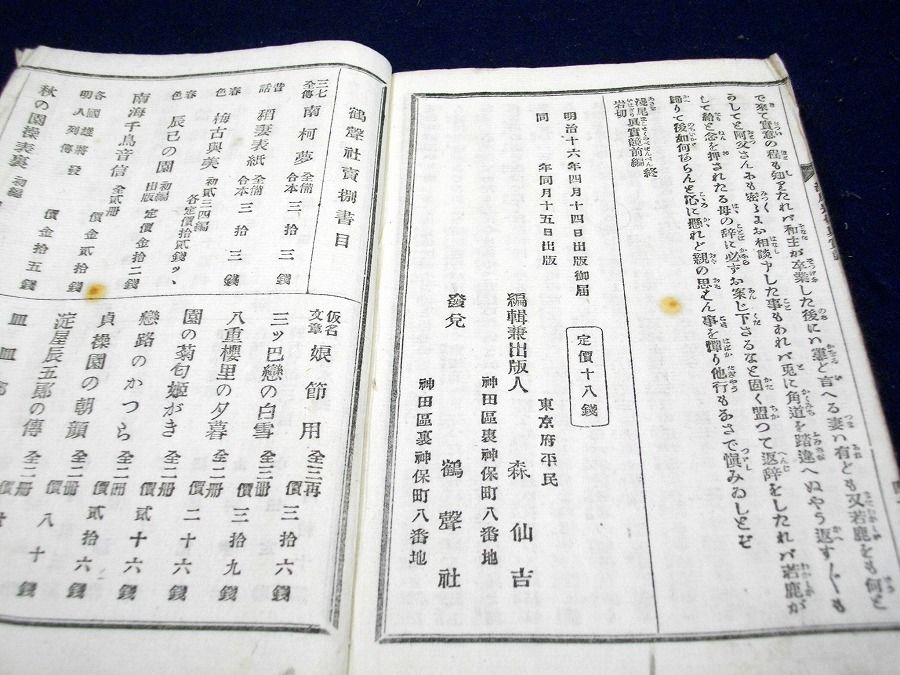 で來て實意の程も知れたれバ和主が卒業した後にハ憲と言へる妻ハ有とも又若鹿をも何と
うしてと阿父さんにも密々お相談申した事もあれバ兎に角道を踏違へぬやう返す〲も
して給と念を押されたる母の辞に必ずお案じ下さるなと固く盟つて返辞をしたれバ若鹿が
歸りて後如何ならんと心に懸れど親の思はん事を憚り他行もなさで愼みゐしとぞ
淺尾岩切眞實競前編終
明治十六年四月十四日出版御届
同 年同月十五日出版
定價十八錢
東京府平民
編輯兼出版人 森仙吉
神田區裏神保町八番地
發兌 鶴聲社
神田區裏神保町八番地
鶴聲社賣捌書目
三七全傳 南柯夢 全備合本 三拾三錢
昔話 稻妻表紙 全備合本 三拾三錢
春色 梅古與美 初貳三四編 各定價拾貳錢ッヽ
春色 辰己の園 初編出版 定價金拾二錢
南海千鳥音信 全貳册 價金貳拾錢
各國雄將明人列傳 發 價金拾五錢
秋の園操表裏 初編
仮名文章 娘節用 全三册 再 價三拾六錢
三ッ巴戀の白雪 全三册 價三拾九錢
八重櫻里の夕暮 全二册 價二十六錢
園の菊句姫がき 全二册 價貳十六錢
戀路のかつら 全二册 價貳拾六錢
貞操園の朝顏 全二册 價八十錢
淀屋辰五郎の傳 全二册 價